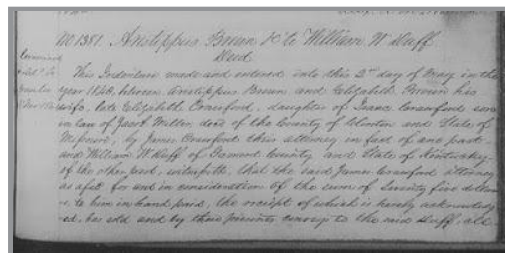 No 1381. Aristippus Brown &c to William W Duff
Deed
This Indenture made and entered into this 2d day of May in the
year 1848, between Aristippus Brown and Elizabeth Brown his
wife, late Elizabeth Crawford, daughter of Isaac Crawford son
in law of Jacob Walter, decd of the County of Clinton and State of
Missouri, by James Crawford their attorney in fact of one part
and William W Duff of County and State of Kentucky
of the other part, witnesseth, that the said James Crawford attorney
as afsd for and in consideration of the sum of Seventy five dollars
to him in hand paid, the receipt of which is hereby acknowledg
ed, has sold and by these presents convey to the said Duff, all